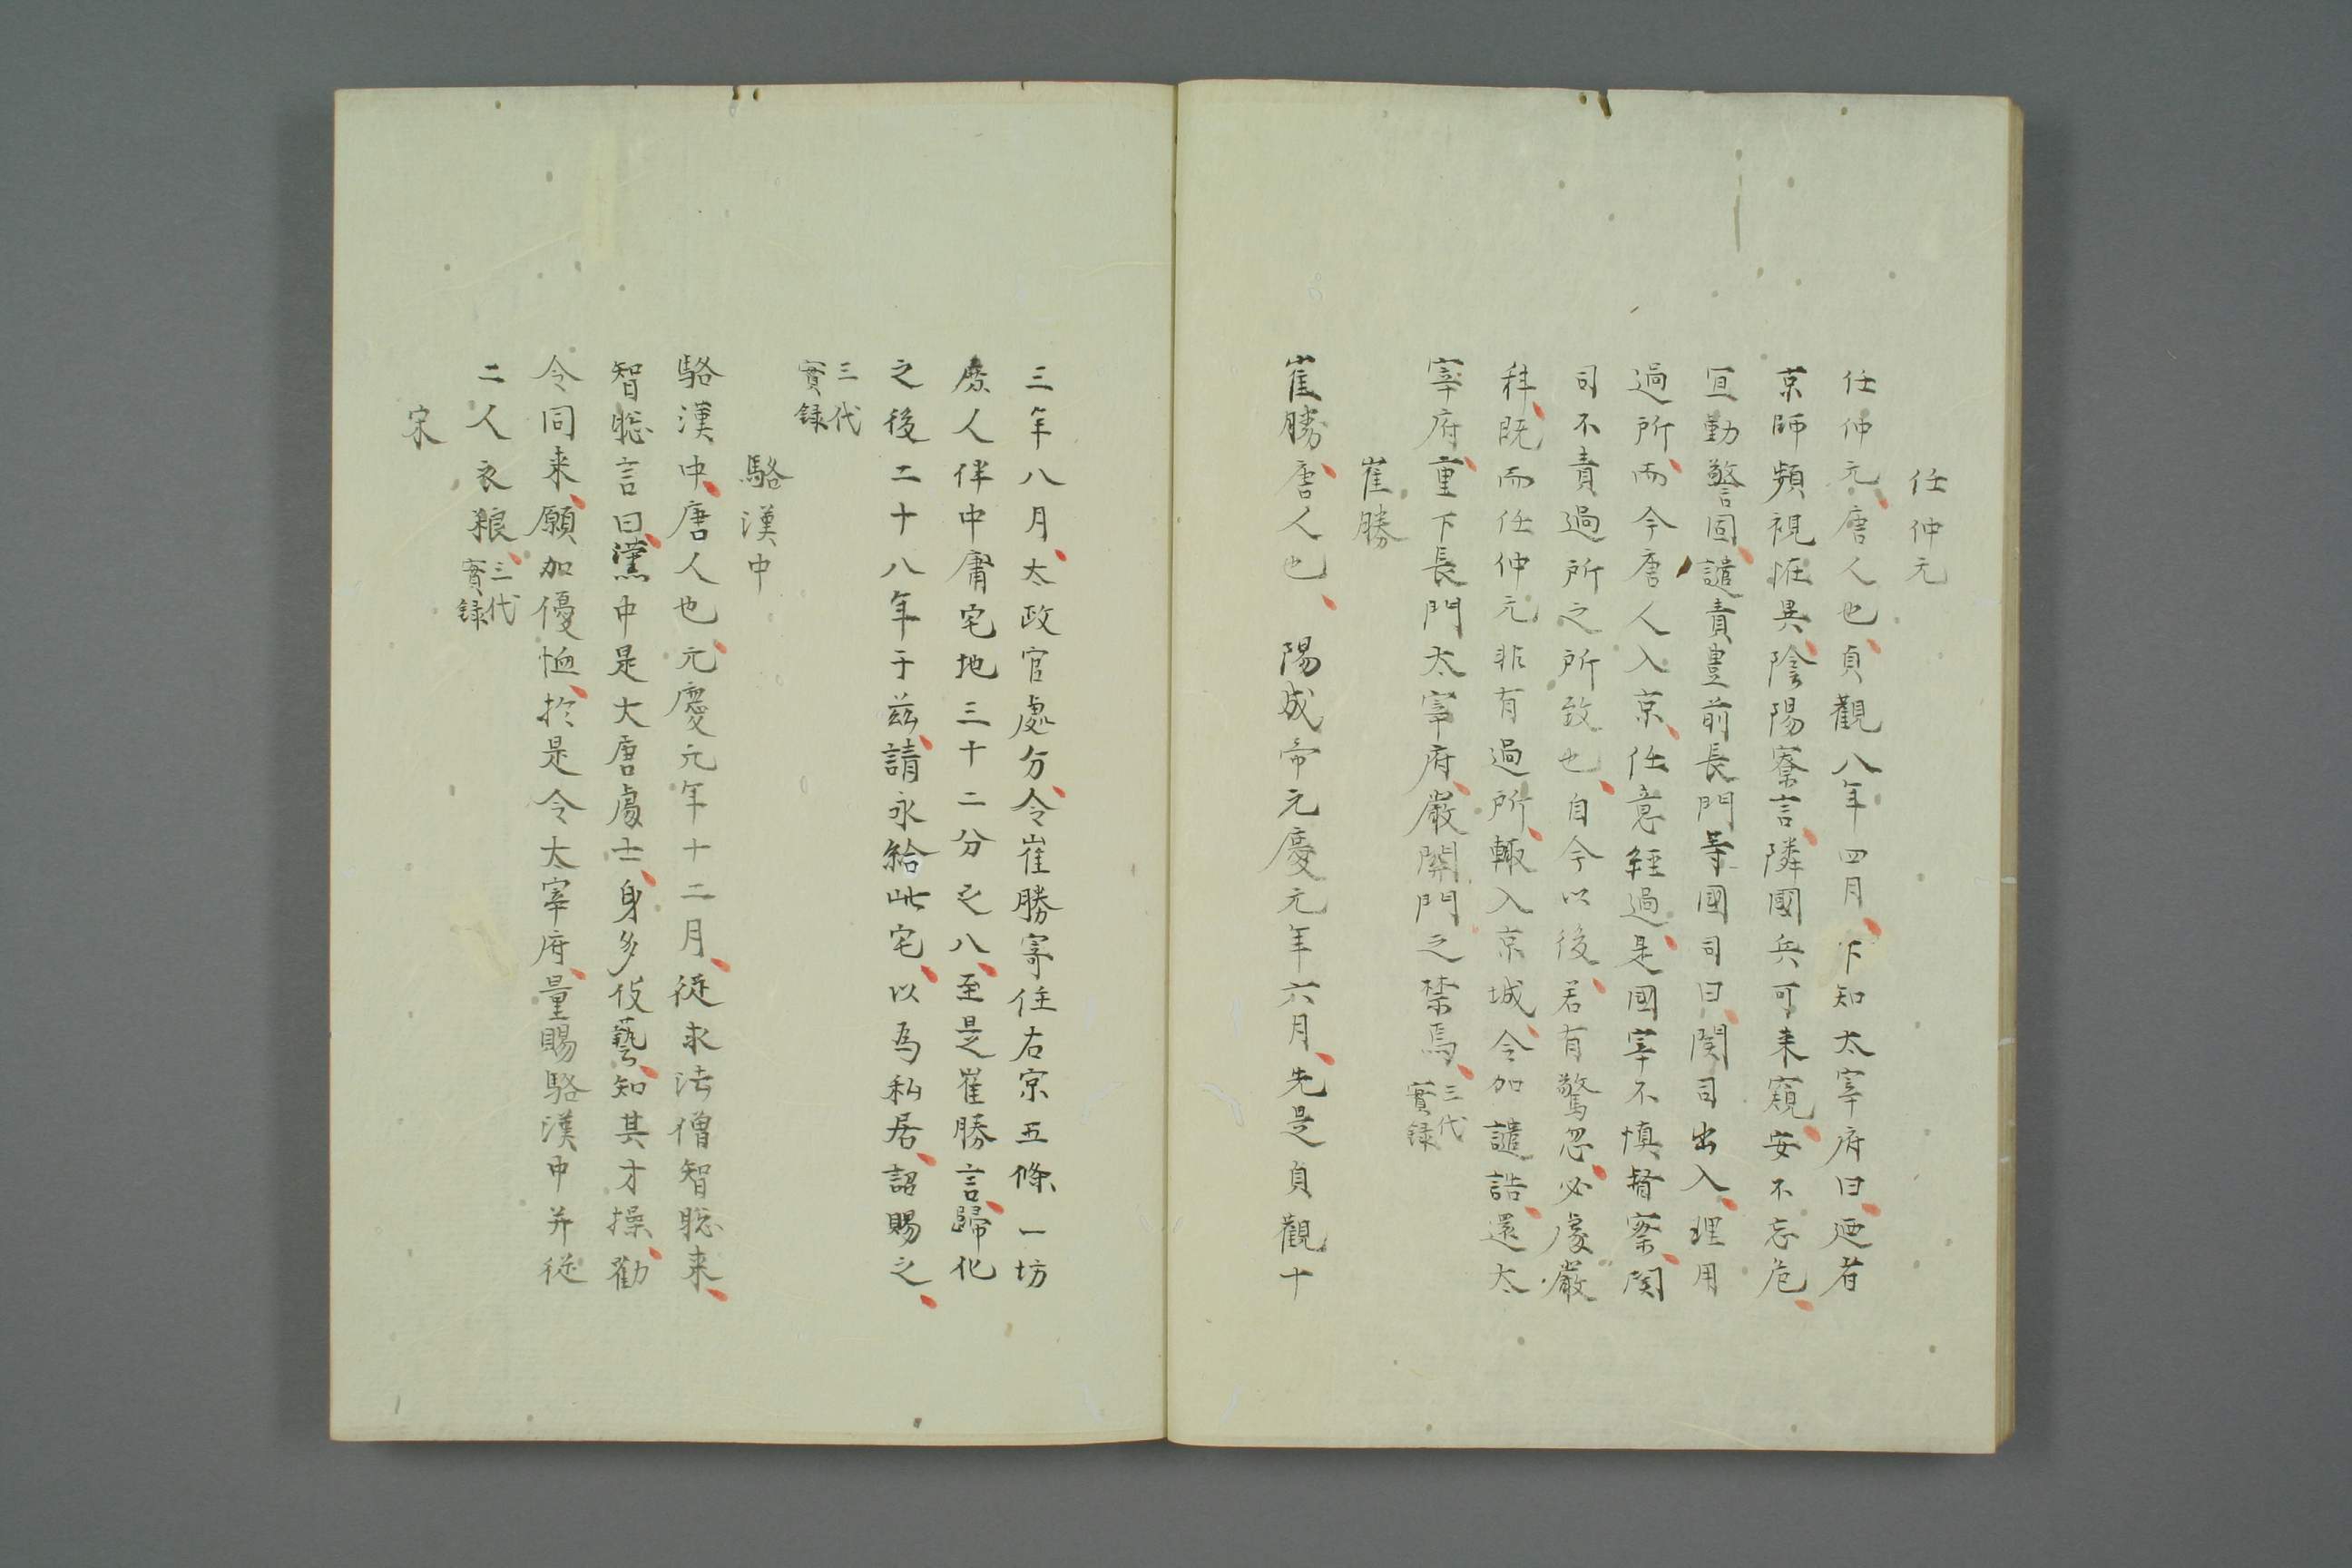 任仲元
任仲元唐人也貞觀八年四月下知太宰府曰廼者
京師頻視恠異陰陽寮言隣國兵可来窺安不忘危
宜勤警固譴責豊前長門等國司曰関司出入理用
過所而今唐人入京任意経過是國宰不慎督察関
司不責過所之所致也自今以後若有驚忽必處嚴
科既而任仲元非有過所輙入京城令加譴詰還太
宰府重下長門太宰府嚴関門之禁焉三代實録
崔勝
崔勝唐人也　陽成帝元慶元年六月先是貞觀十
三年八月太政官處分令崔勝寄住右京五條一坊
庶人伴中庸宅地三十二分之八至是崔勝言歸化
之後二十八年于茲請永給此宅以為私居詔賜之
三代實録
駱漢中
駱漢中唐人也元慶元年十二月從求法僧智聡来
智聡言曰漢中是大唐處士身多伎藝知其才操勸
令同来願加優恤於是令太宰府量賜駱漢中并從
二人衣粮三代實録
宋